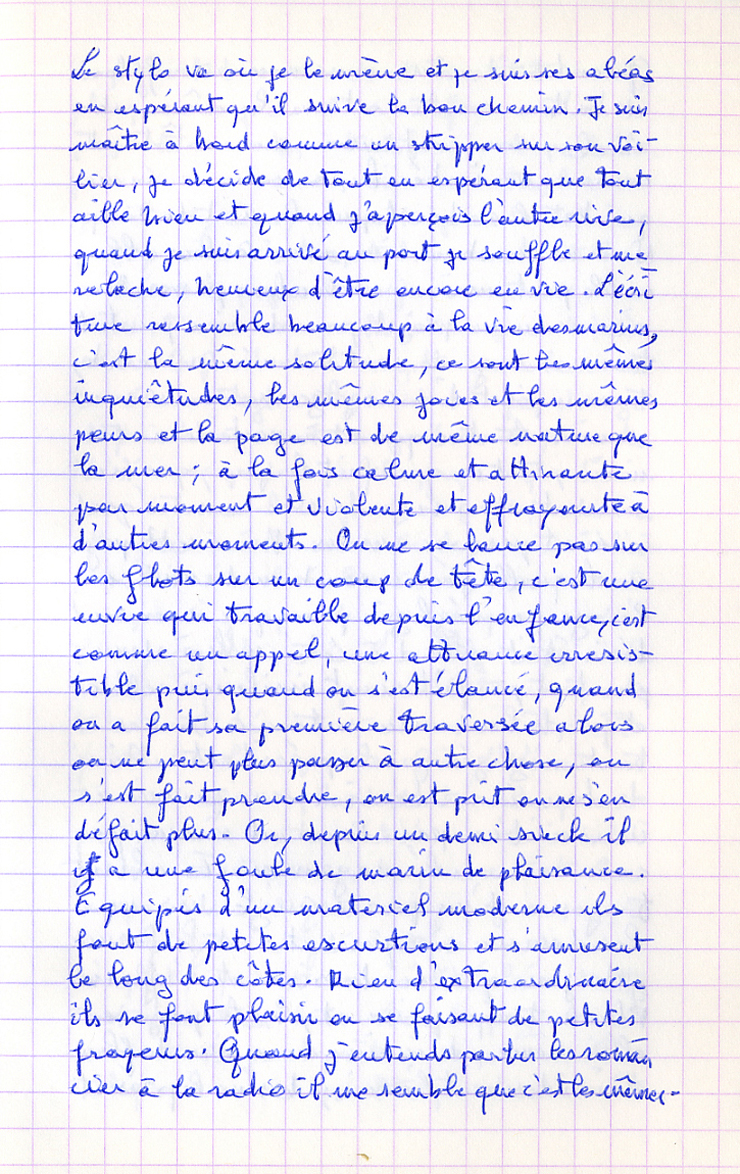 Le stylo va où je le mène et je suis ses aléas
en espérant qu'il suive le bon chemin. Je suis
maître à bord comme un skipper sur son voi-
lier, je décide de tout en espérant que tout
aille bien et quand j'aperçois l'autre rive,
quand je suis arrivé au port je souffle et me
relache, heureux d'être encore en vie. L'écri
ture ressemble beaucoup à la vie des marins,
c'est la même solitude, ce sont les mêmes
inquiêtudes, les mêmes joies et les mêmes
peurs et la page est de même nature que
la mer ; à la fois calme et attirante
par moment et violente et effrayante à
d'autres moments. On ne se lance pas sur
les flots sur un coup de tête, c'est une
envie qui travaille depuis l'enfance, c'est
comme un appel, une attirance irresis-
tible puis quand on s'est élancé, quand
on a fait sa première traversée alors
on ne peut plus passer à autre chose, on
s'est fait prendre, on est prit on ne s'en
défait plus. Or, depuis un demi siècle il
y a une foule de marin de plaisance.
Equipés d'un materiel moderne ils
font de petites escurtions et s'amusent
le long des côtes. Rien d'extraordinaire
ils se font plaisir en se faisant de petites
frayeurs. Quand j'entends parler les roman
cier à la radio il me semble que c'est les mêmes-